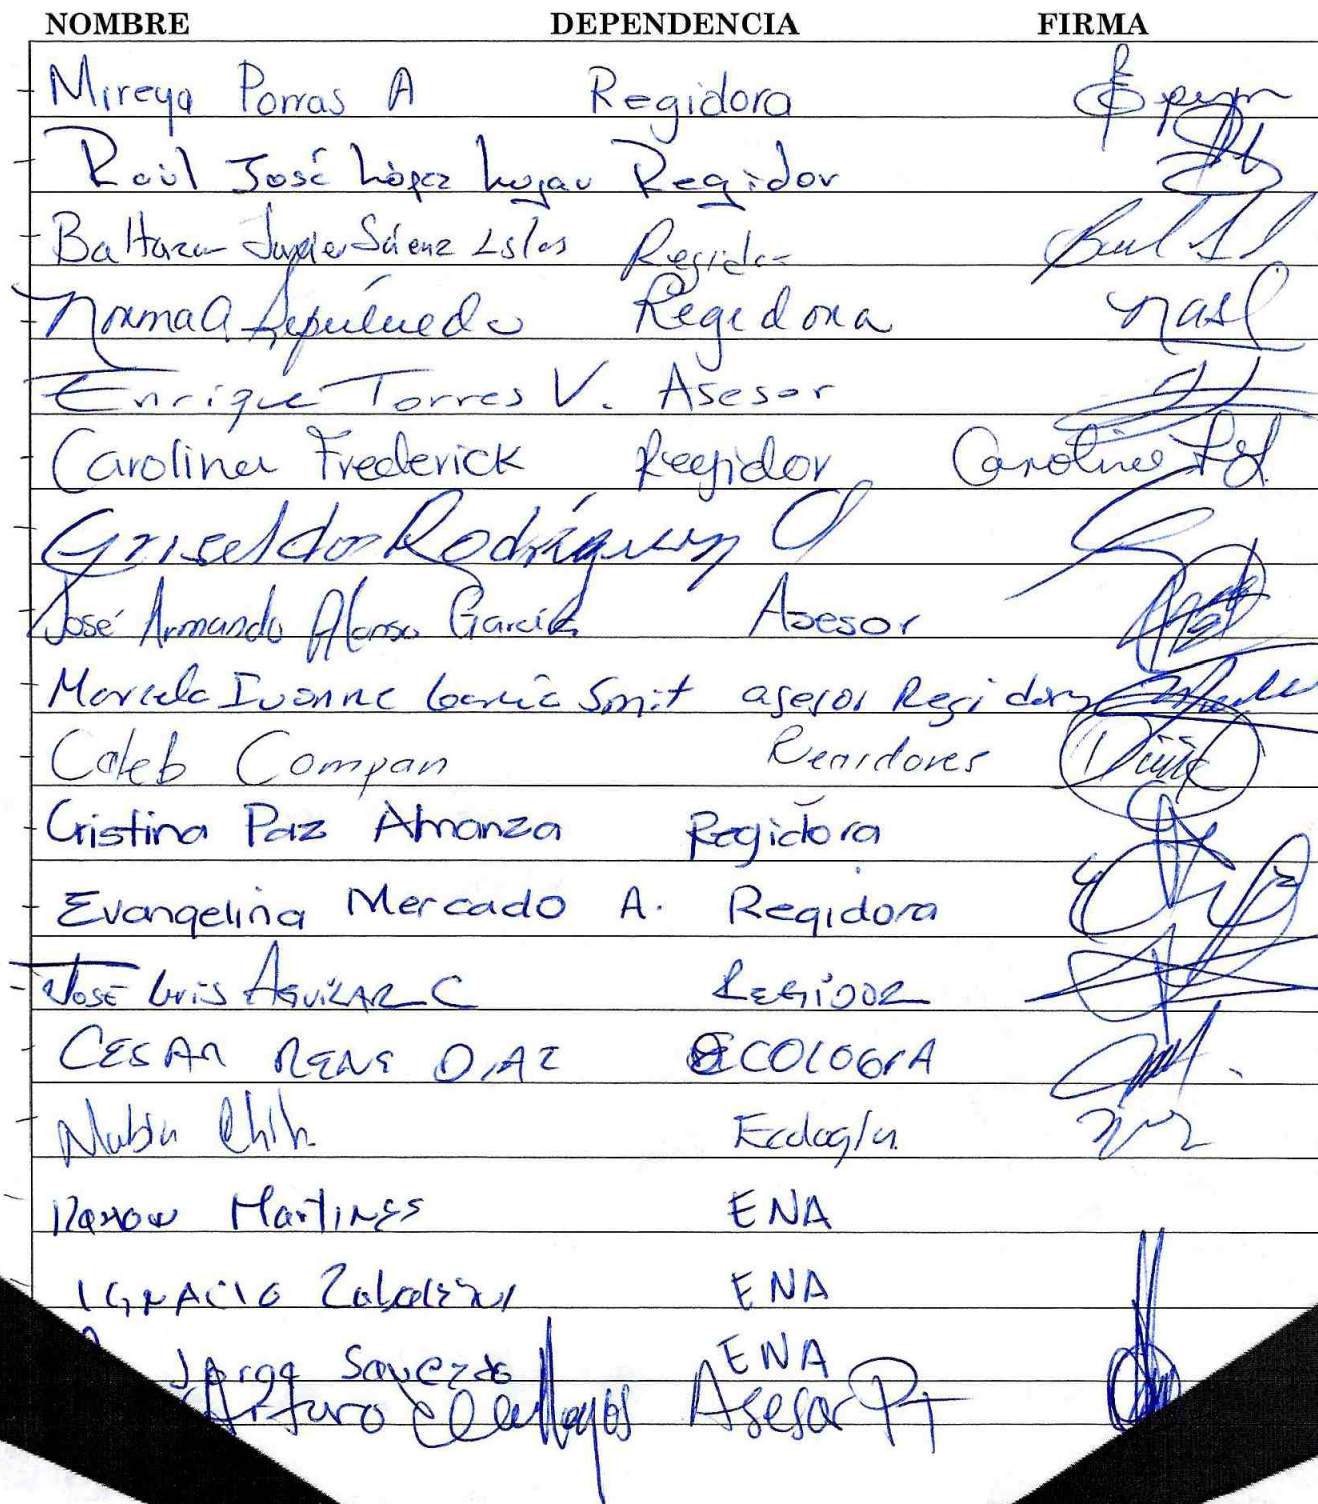 NOMBRE DEPENDENCIA FIRMA
Mireya Porras A Regidora
Raúl José López Lujan Regidor
Baltazar Javier Sáenz Islas Regidor
Norma A Sepúlveda Regidora nasl
Enrique Torres V. Asesor
Carolina Frederick Regidor Carolina
Griselda Rodríguez
José Armando Alonso García Asesor
Marcela Ivonne García Smit asesor Regidora
Caleb Compan Regidores
Cristina Paz Almanza Regidora
Evangelina Mercado A. Regidora
José Luis AGUILAR C REGIDOR
CESAR RENE DIAZ ECOLOGIA
Nubia Ecología
Ramon Martines ENA
IGNACIO ENA
Jorge ENA
Arturo Asesor PT